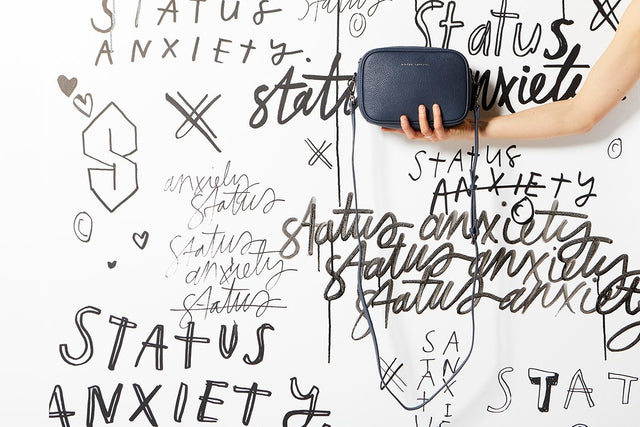 STATUS
ANXIETY.
status
©
Status
status anxiety
anxiety
status
STATUS
ANXIETY
S
©
©
©
status anxiety
status anxiety
status anxiety
status
anxiety
status
STATUS
ANXIETY.
STAT
ANXIE
STAT